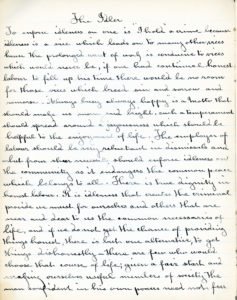 The Idler
To enforce idleness on one is "I hold" a crime, because
idleness is a vice which leads on to many other vices
have the prolonged want of work is conducive to vices
which would never be, if one had continued honest
labour to fill up his time there would be no room
for those vices which breed sin and sorrow and
remorse. Always busy always happy is a truth that
should make us normal and bright, such a temperament
should spread around a expansiveness which should be
helpful to the enjoyment of life. The employer of
labour should be very reluctant in dismissals and
what from other should enforce idleness on
the community as it endangers the common peace
which belongs to all. There is true dignity in
honest labour. It is idleness that creates the criminal
provide we must for ourselves and others that are
near and dear to us the common necessaries of
life, and if we do not get the chance of providing
things honest, there is but one alternative, to get
things dishonestly. There are few who would
choose that course of life, given a fair start and
making ourselves useful members of society. The
man confident in his own power need not fear